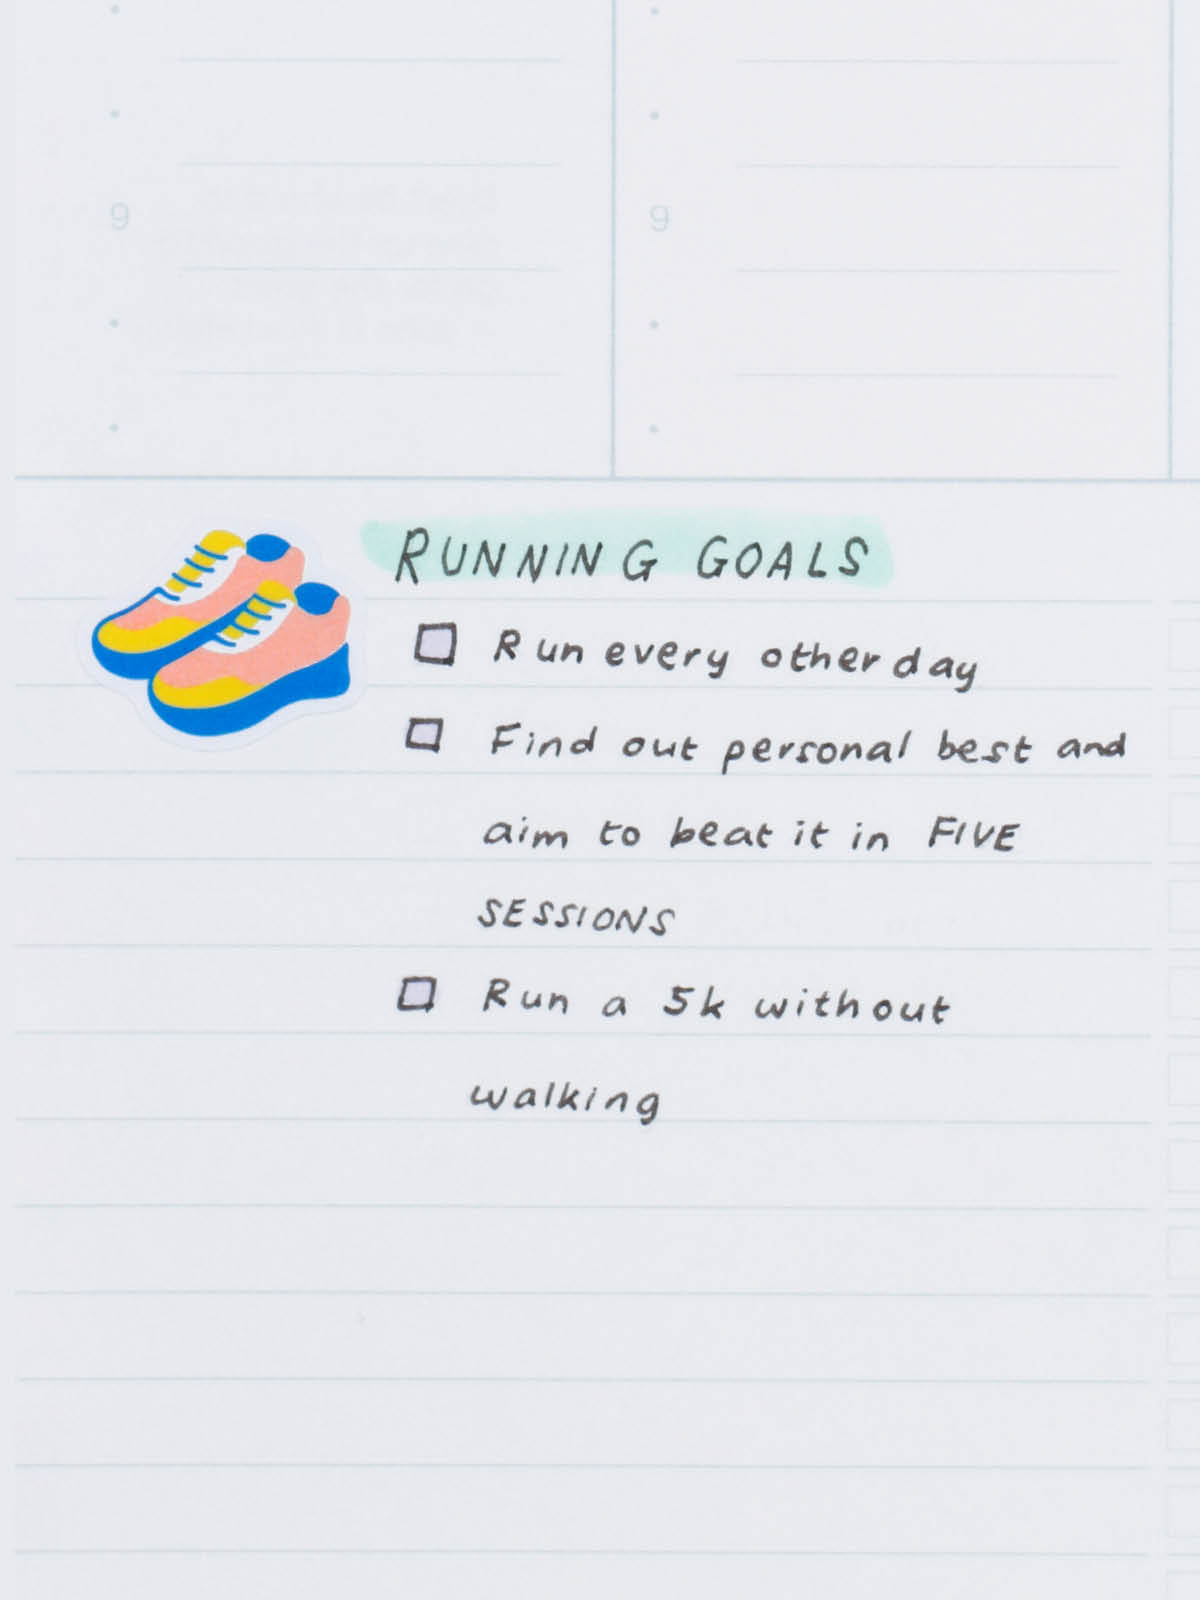 9 9
RUNNING GOALS
Run every other day
Find out personal best and
aim to beat it in FIVE
SESSIONS
Run a 5k without
walking